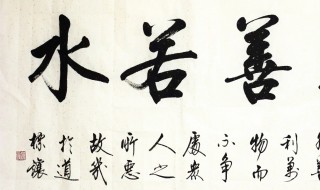 善若水
利萬
物而
不争
處衆
人之
所惡
故幾
於道